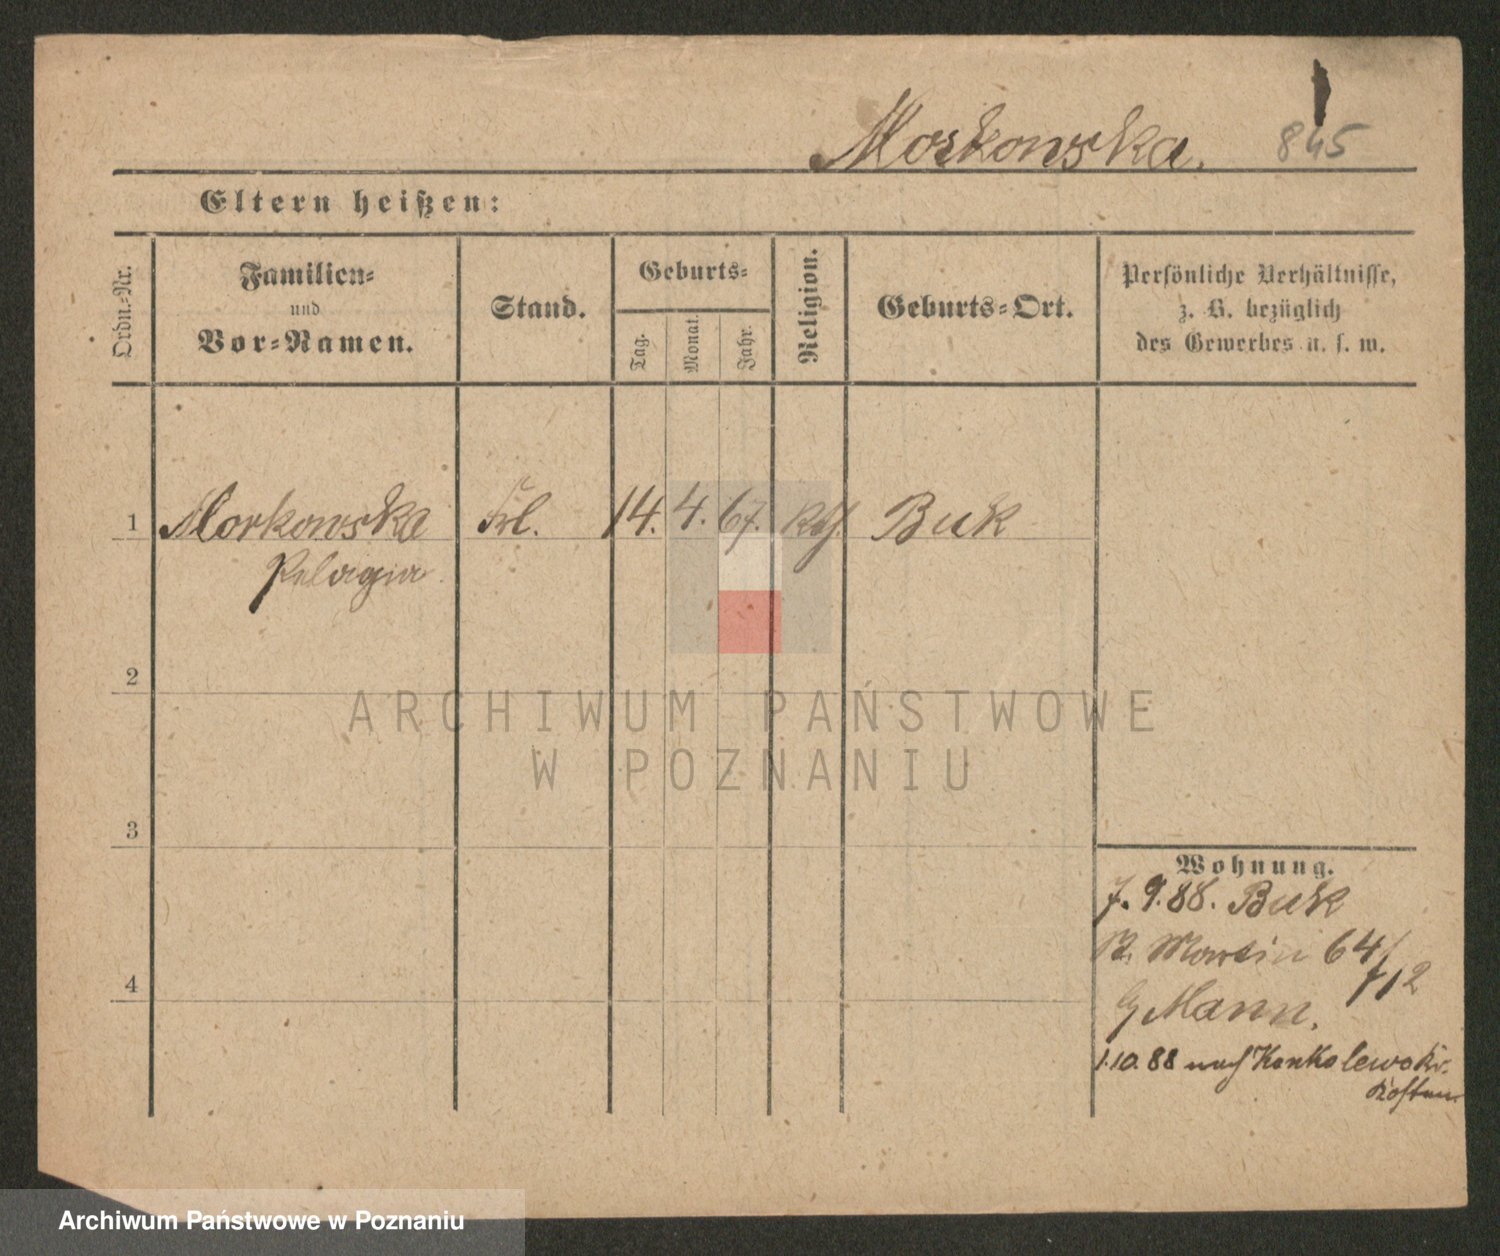 Morkowska. 845
Eltern heißen:
Ordn.-Nr.
Familien-
und
Vor-Namen.
Stand.
Geburts-
Tag.
Monat.
Jahr.
Religion.
Geburts-Ort.
Persönliche Verhältnisse,
z. B. bezüglich
des Gewerbes u. s. w.
1 Morkowska Frl. 14. 4. 67. kth. Buk
Pelagia
2
3
4
Wohnung.
7. 9. 88. Buk
St. Martin 64/
712
G Mann.
1.10.88 nach Konkolewo Kr.
Kosten
ARCHIWUM PAŃSTWOWE
W POZNANIU
Archiwum Państwowe w Poznaniu